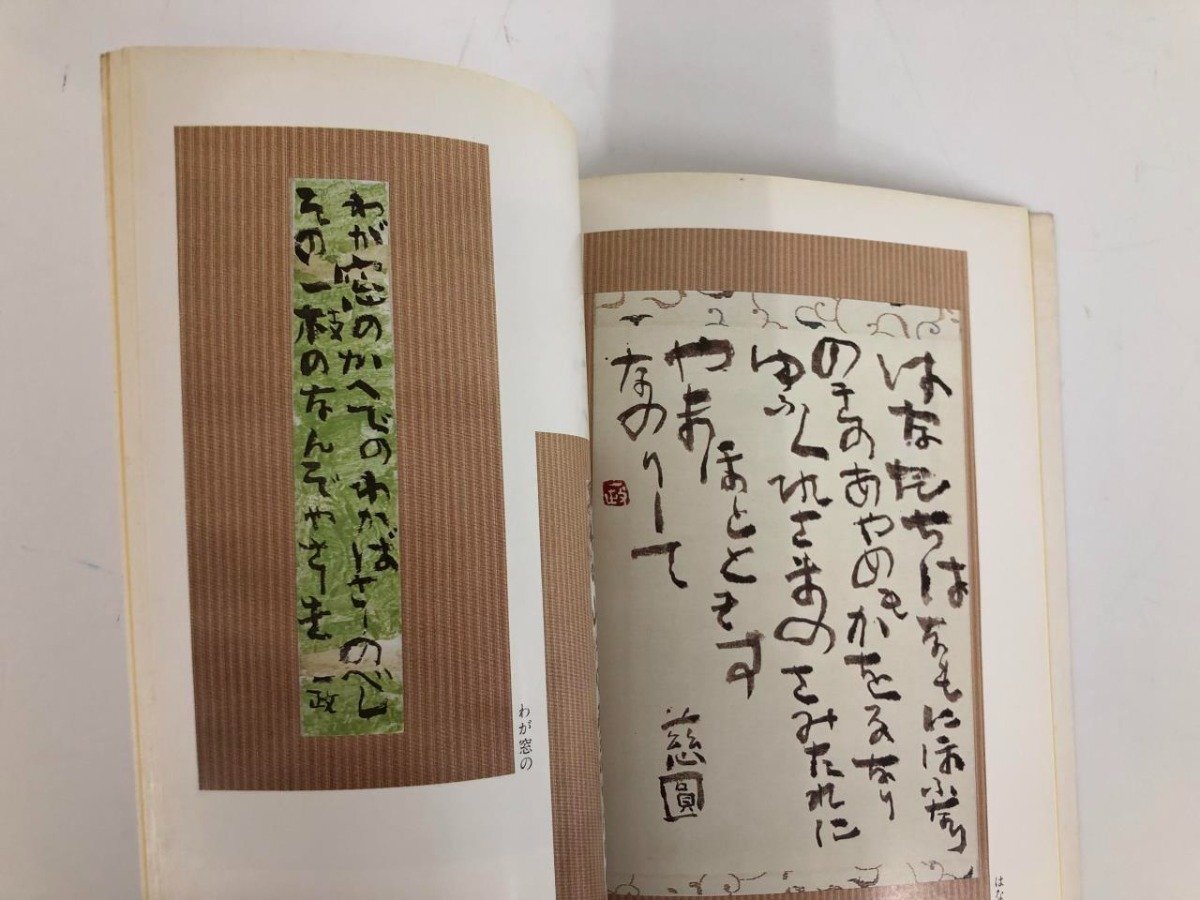 わが窓のかへでのわかばさしのべし
その一枝のなんぞやさしき
一政
わが窓の
はなたちはなもにほふなり
のきのあやめもかをるなり
ゆふくれさまのさみたれに
やまほとときす
なのりして
慈圓
一政
はな